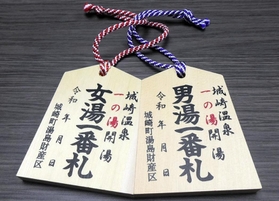 城崎温泉
一の湯開湯
男湯一番札
令和　年　月　日
城崎町湯島財産区
城崎温泉
一の湯開湯
女湯一番札
令和　年　月　日
城崎町湯島財産区